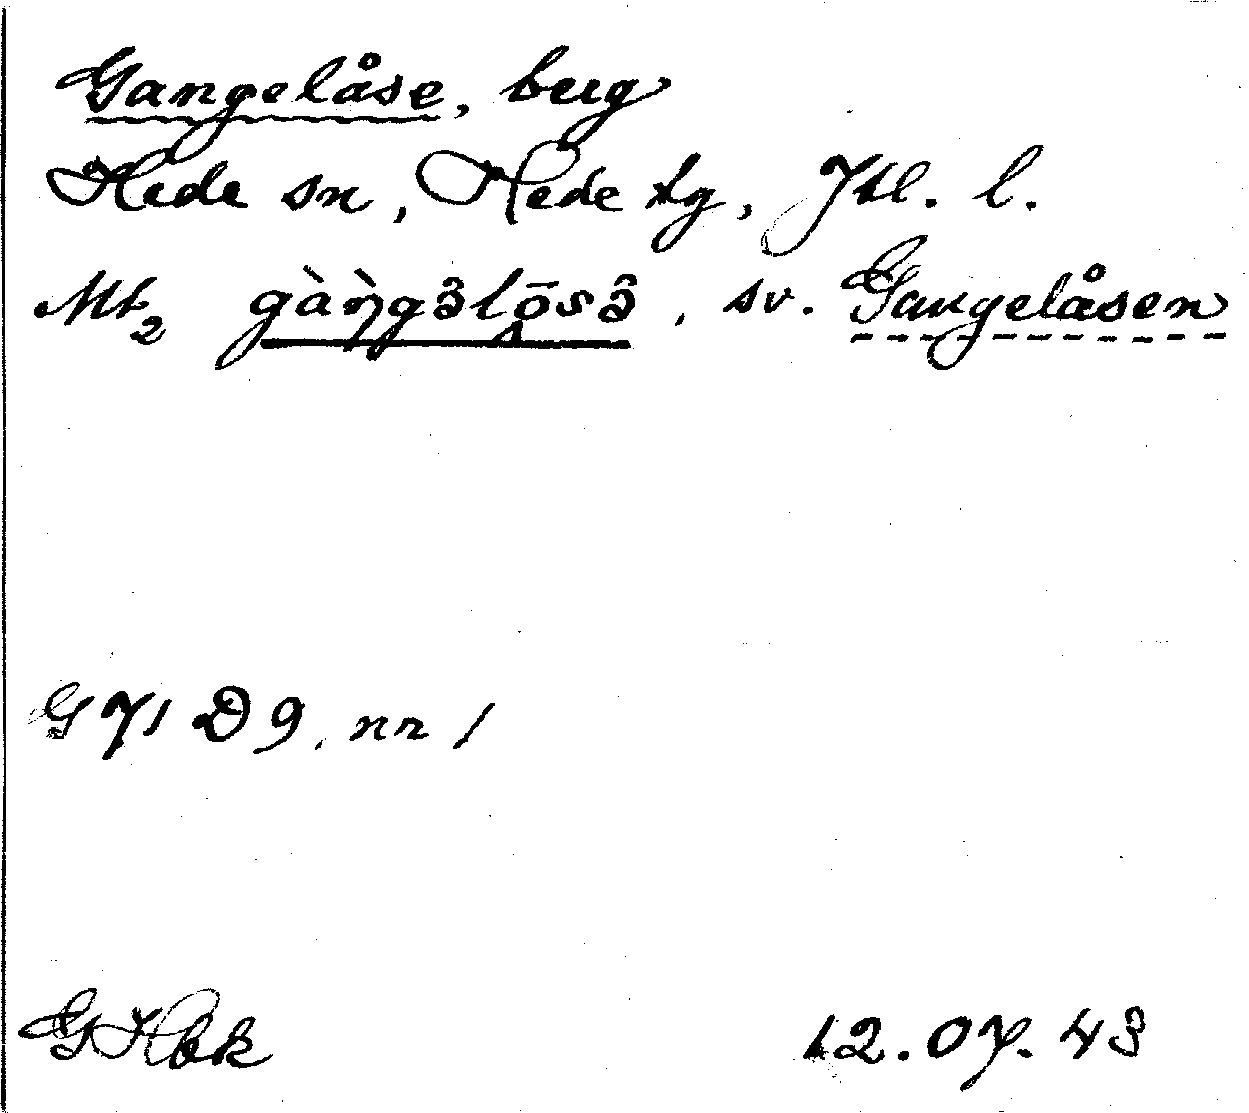 Gangelåse, berg
Hede sn, Hede tg, Jtl. l.
Mt₂ gàŋ̀gə̂lōsə̂, sv. Gangelåsen
G 71 D9, nr 1
GHbk 12.07.43